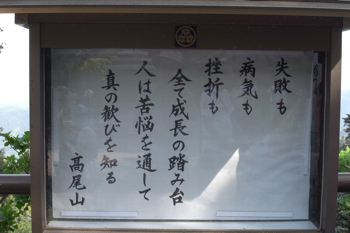 失敗も
病気も
挫折も
全て成長の踏み台
人は苦悩を通して
真の歓びを知る
高尾山